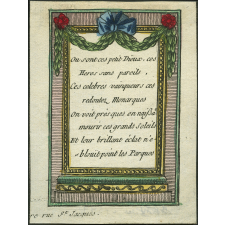 Ou sont ces petit Dieux, ces
Heros sans pareils.
Ces celebres vainqueurs ces
redoutez Monarques
On voit presques en naissã
mourir ces grands Soleils
Et leur brillant éclat n'e
-blouit point les Parques
re rue St. Jacques